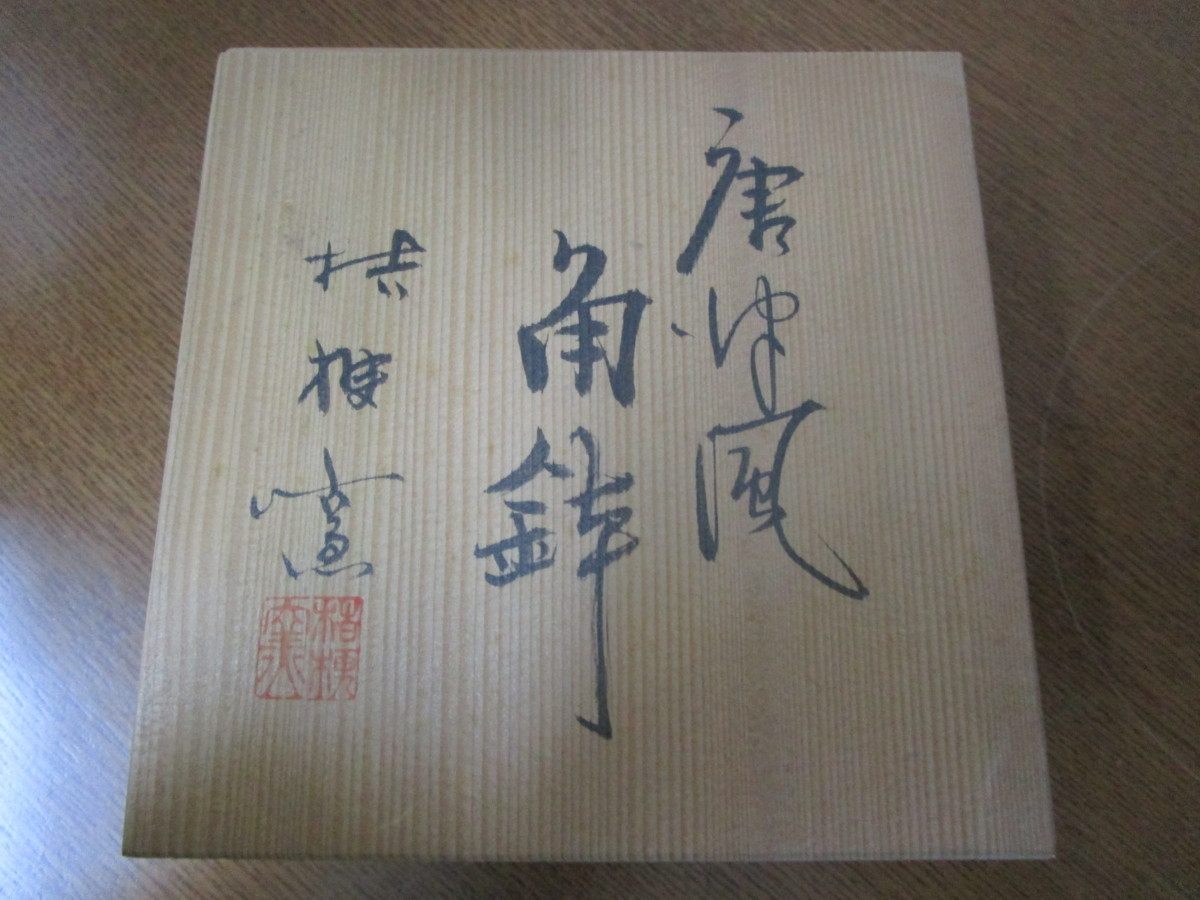 唐津風
角鉢
桔梗窯
桔梗窯